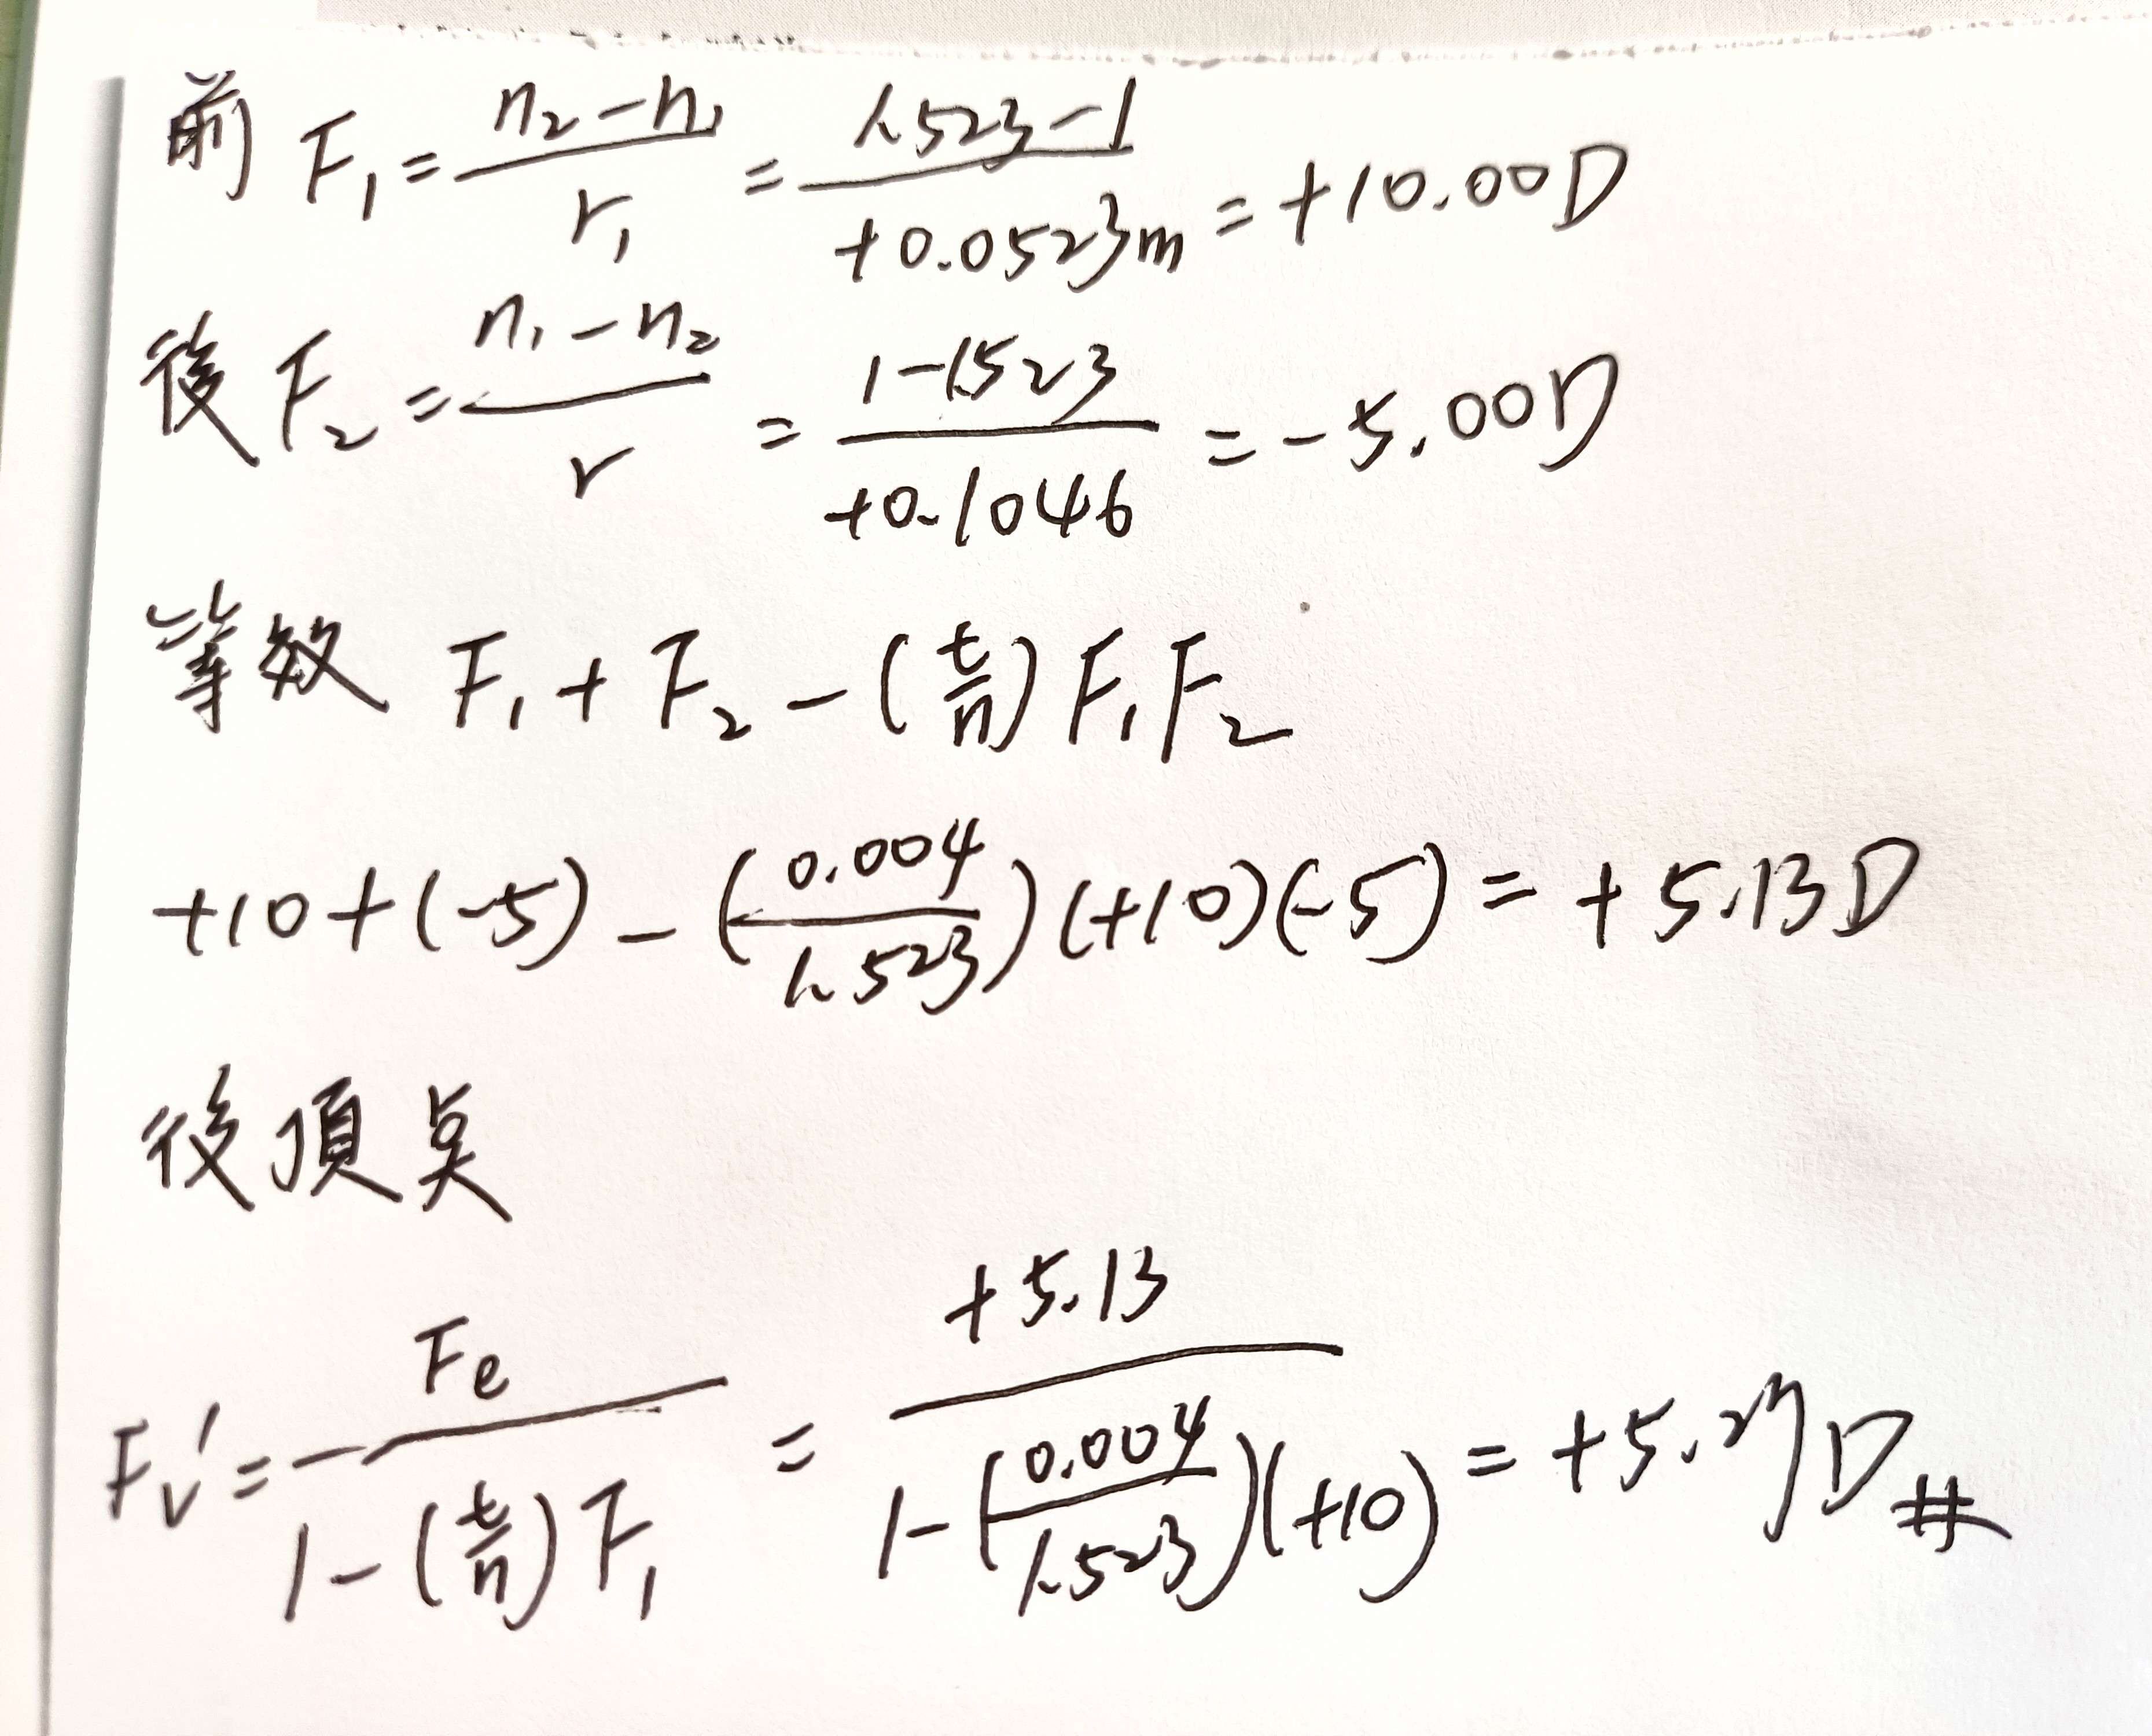 前 F₁ = (n₂ - n₁)/r₁ = (1.523 - 1)/(+0.0523m) = +10.00D
後 F₂ = (n₁ - n₂)/r = (1 - 1.523)/(+0.1046) = -5.00D
等效 F₁ + F₂ - (t/n) F₁F₂
+10 + (-5) - (0.004/1.523)(+10)(-5) = +5.13D
後頂奌
Fv' = Fe/(1 - (t/n)F₁) = +5.13/(1 - (0.004/1.523)(+10)) = +5.27D #